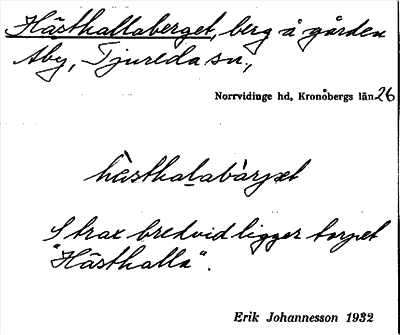 Hästhallaberget, berg å gården
Åby, Tjureda sn,
Norrvidinge hd, Kronobergs län 26
hàsthalabàrjet
Strax bredvid ligger torpet
"Hästhalla".
Erik Johannesson 1932